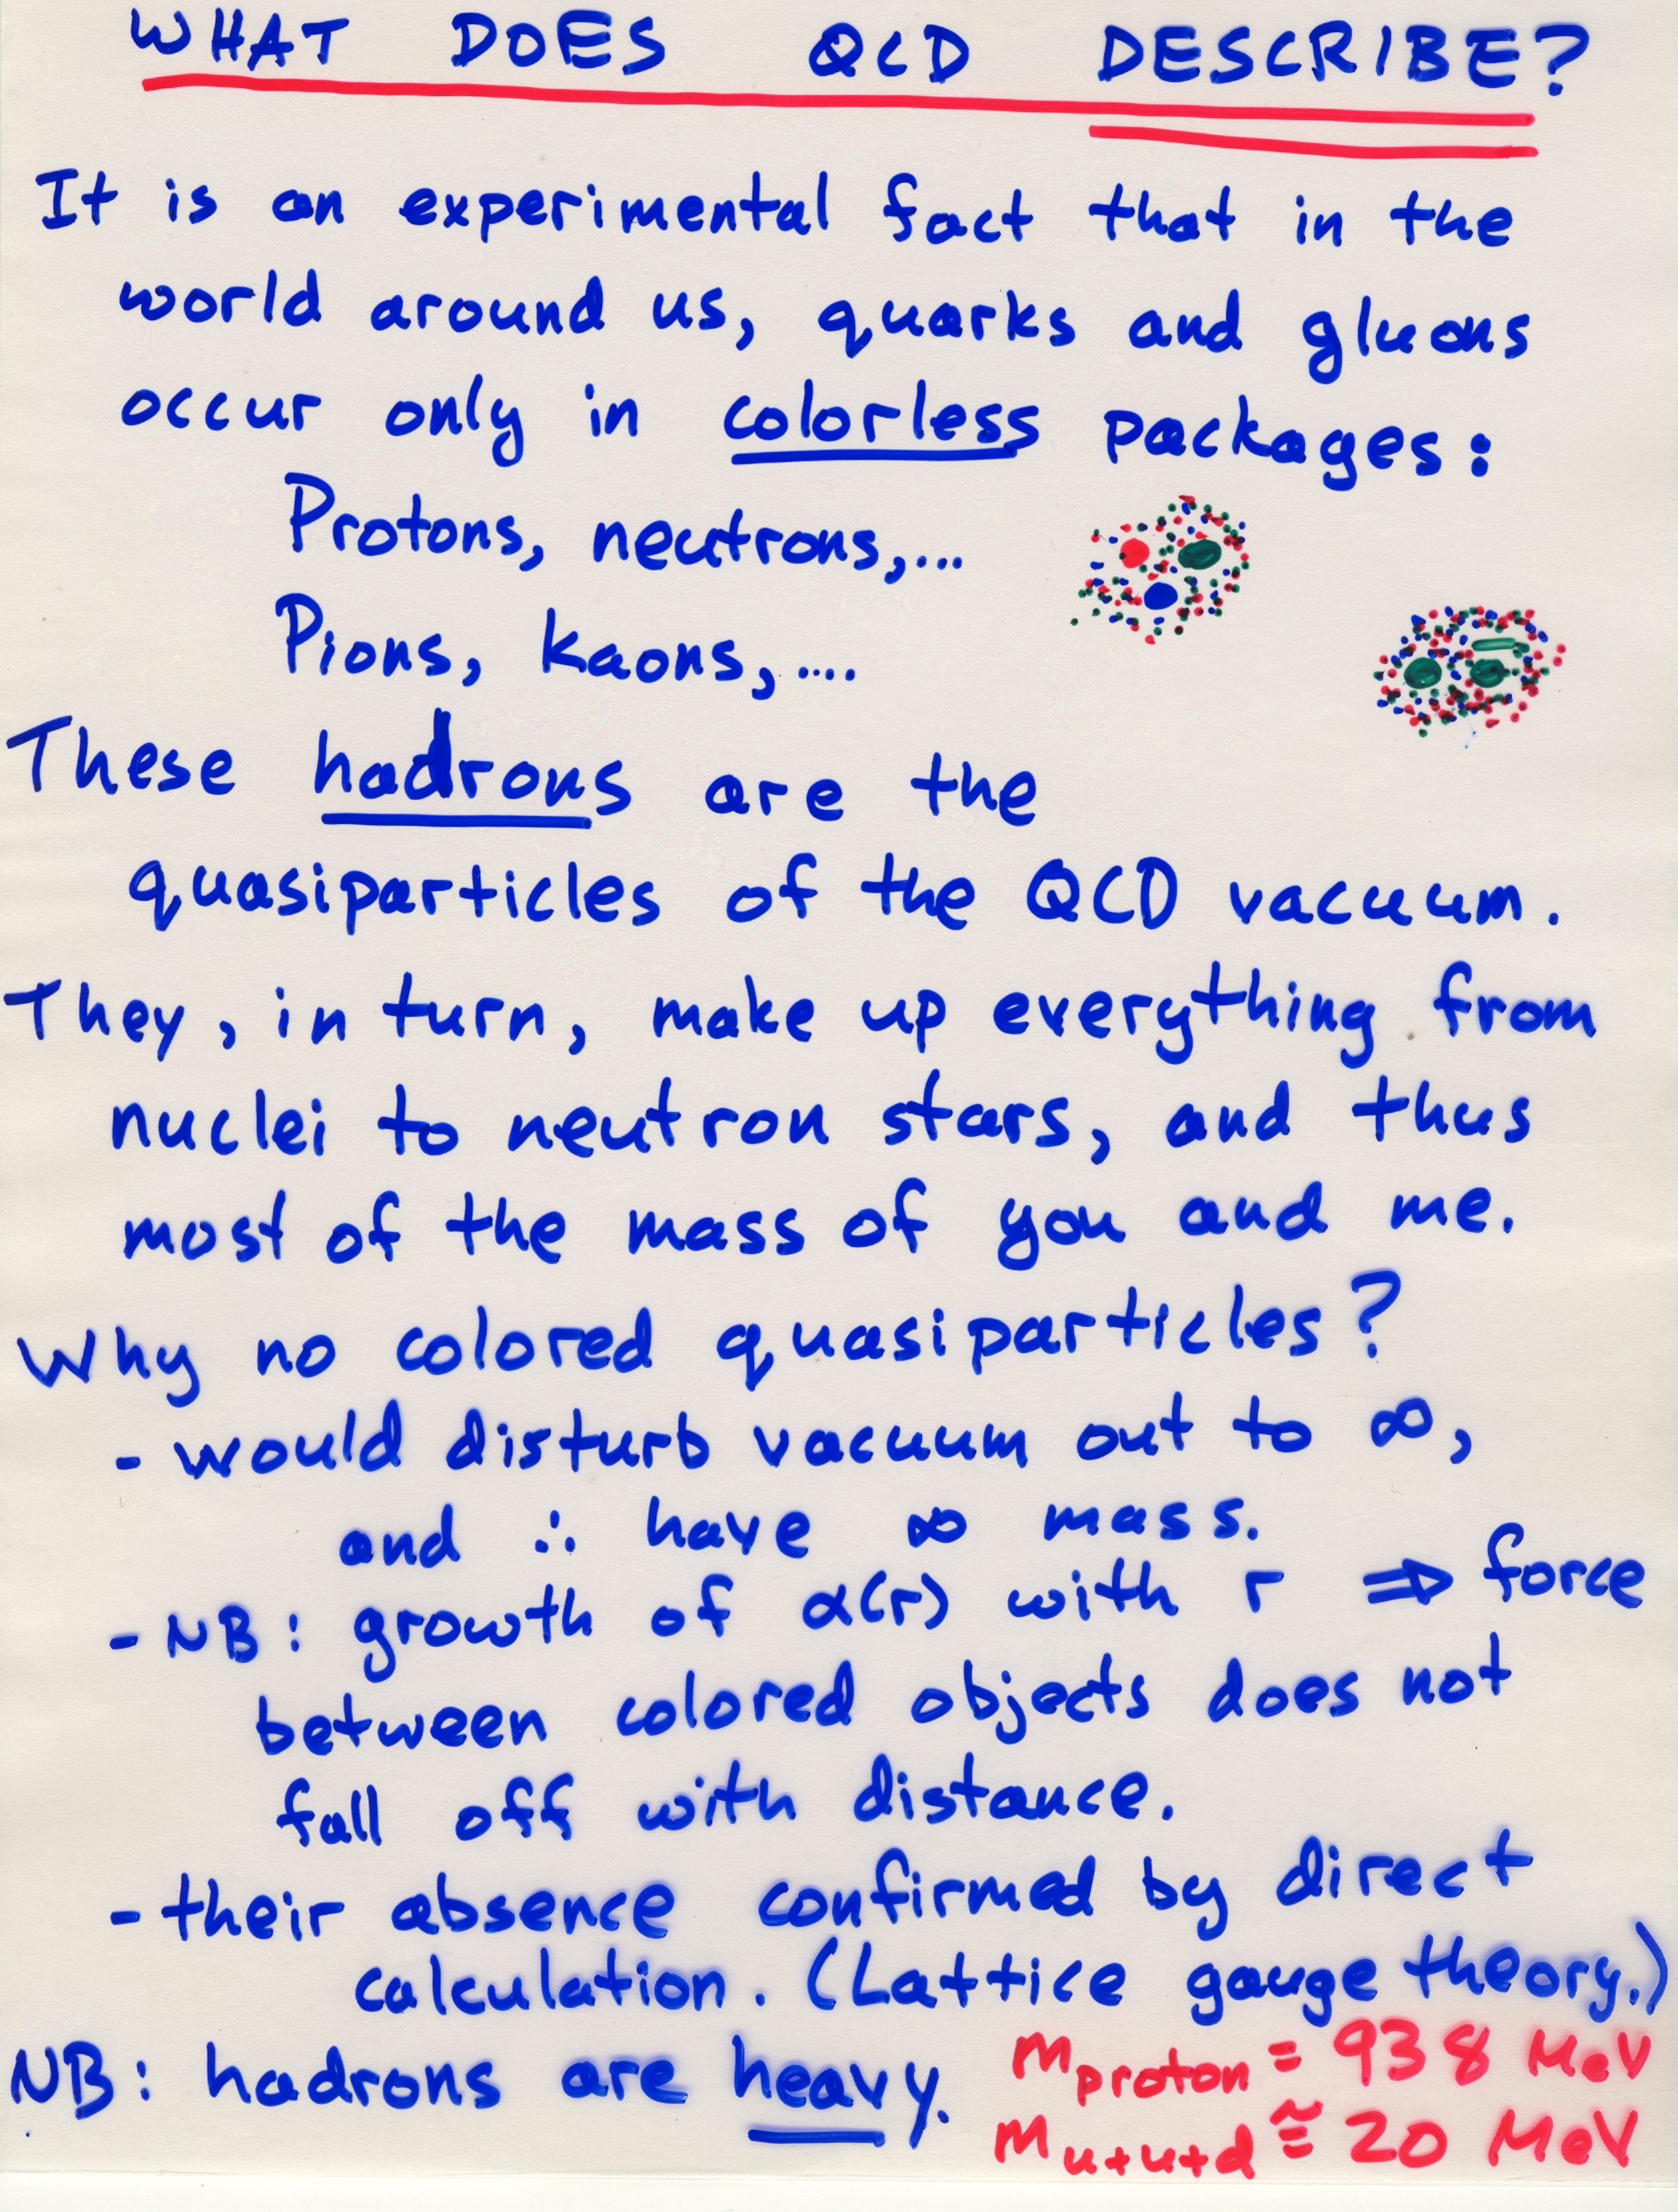 WHAT DOES QCD DESCRIBE?
It is an experimental fact that in the
world around us, quarks and gluons
occur only in colorless packages:
Protons, neutrons,...
Pions, kaons,....
These hadrons are the
quasiparticles of the QCD vacuum.
They, in turn, make up everything from
nuclei to neutron stars, and thus
most of the mass of you and me.
Why no colored quasiparticles?
- would disturb vacuum out to ∞,
and ∴ have ∞ mass.
- NB: growth of α(r) with r ⇒ force
between colored objects does not
fall off with distance.
- their absence confirmed by direct
calculation. (Lattice gauge theory.)
NB: hadrons are heavy. m proton = 938 MeV
m u+u+d ≅ 20 MeV